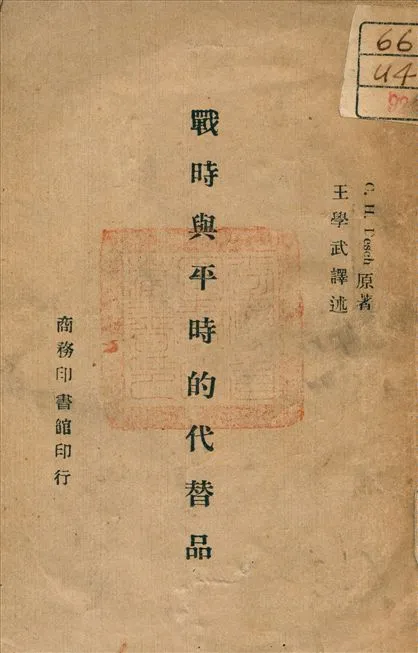 66
U4
C. H. Desch 原著
王學武譯述
戰時與平時的代替品
商務印書館印行